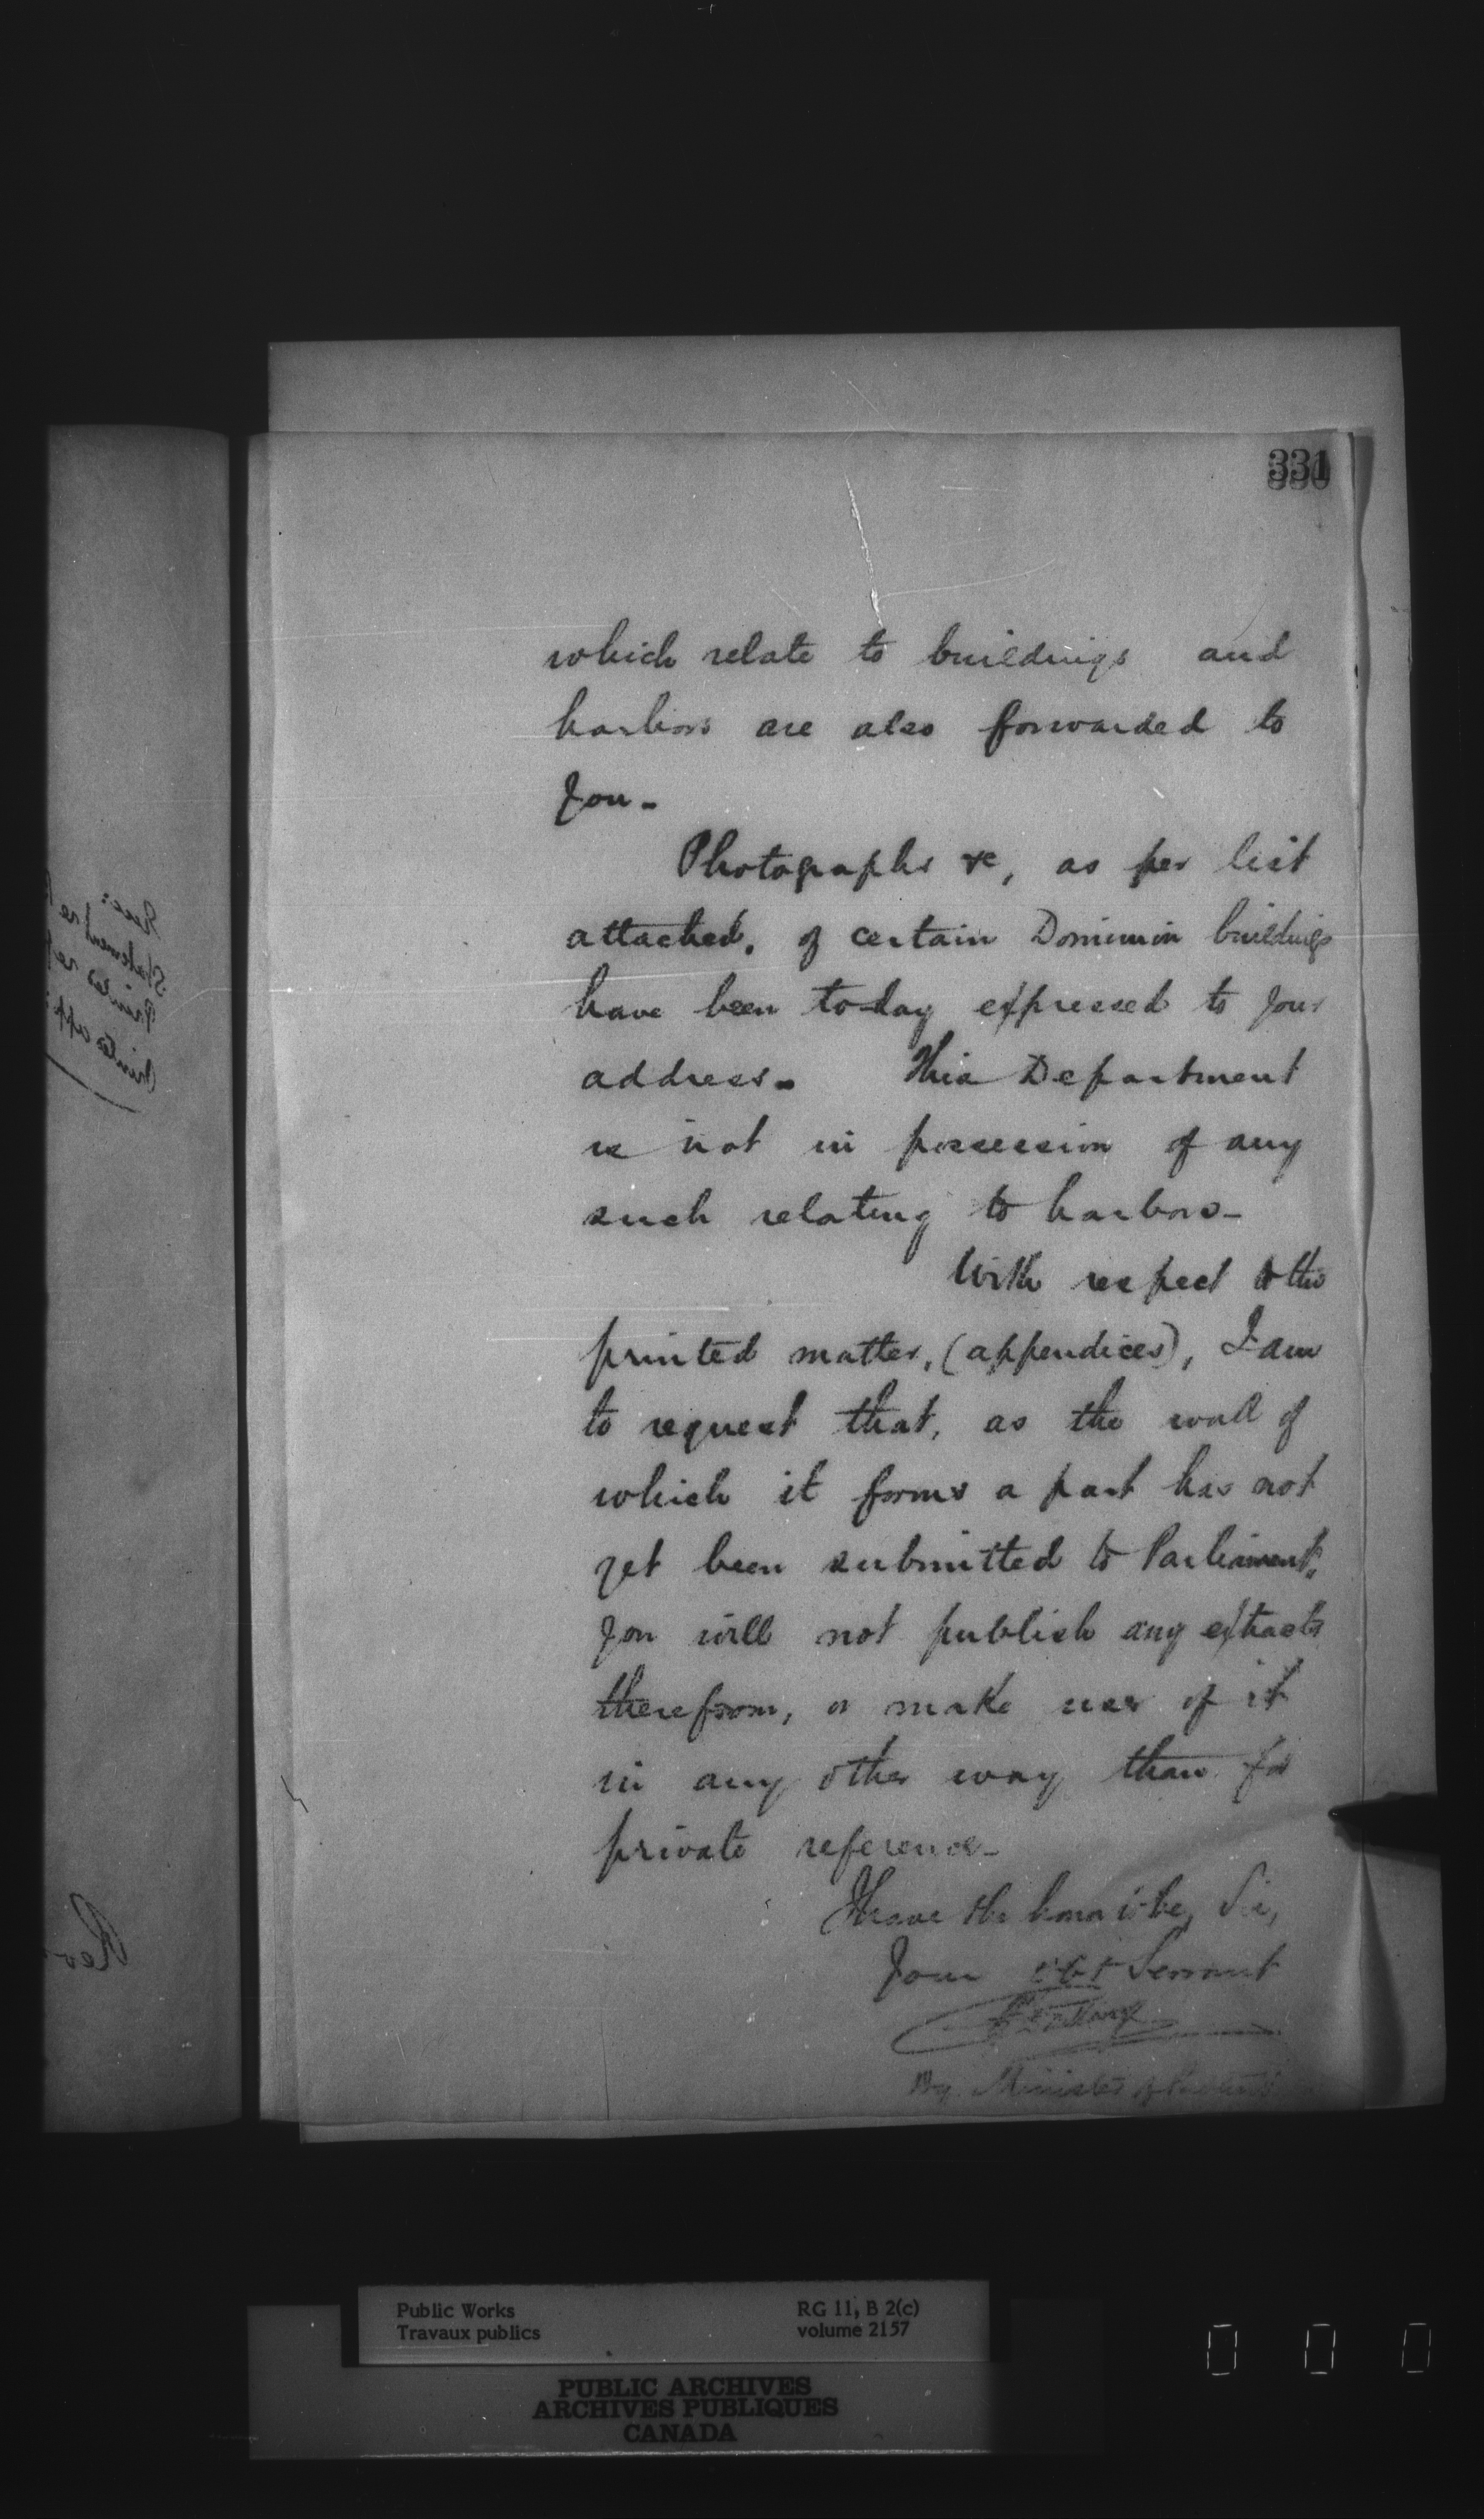 331
which relate to buildings and
harbors are also forwarded to
you-
Photographs &c, as per list
attached, of certain Dominion buildings
have been to-day expressed to your
address- This Department
is not in possession of any
such relating to harbors-
With respect to the
printed matter, (appendices), I am
to request that, as the work of
which it forms a part has not
yet been submitted to Parliament,
you will not publish any extracts
therefrom, or make use of it
in any other way than for
private reference-
I have the honor to be, Sir,
Your obt Servant
Minister of
Public Works
Travaux publics
RG 11, B 2(c)
volume 2157
PUBLIC ARCHIVES
ARCHIVES PUBLIQUES
CANADA
0 0 0